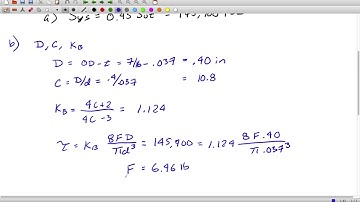 a) Sys = 0.45 Sut = 145,700
b) D, C, KB
D = OD - t = 7/16 - .037 = .40 in
C = D/d = .4/.037 = 10.8
KB = 4C+2 / 4C-3 = 1.124
τ = KB 8FD / πd³ = 145,700 = 1.124 8F·.40 / π .037³
F = 6.96 lb